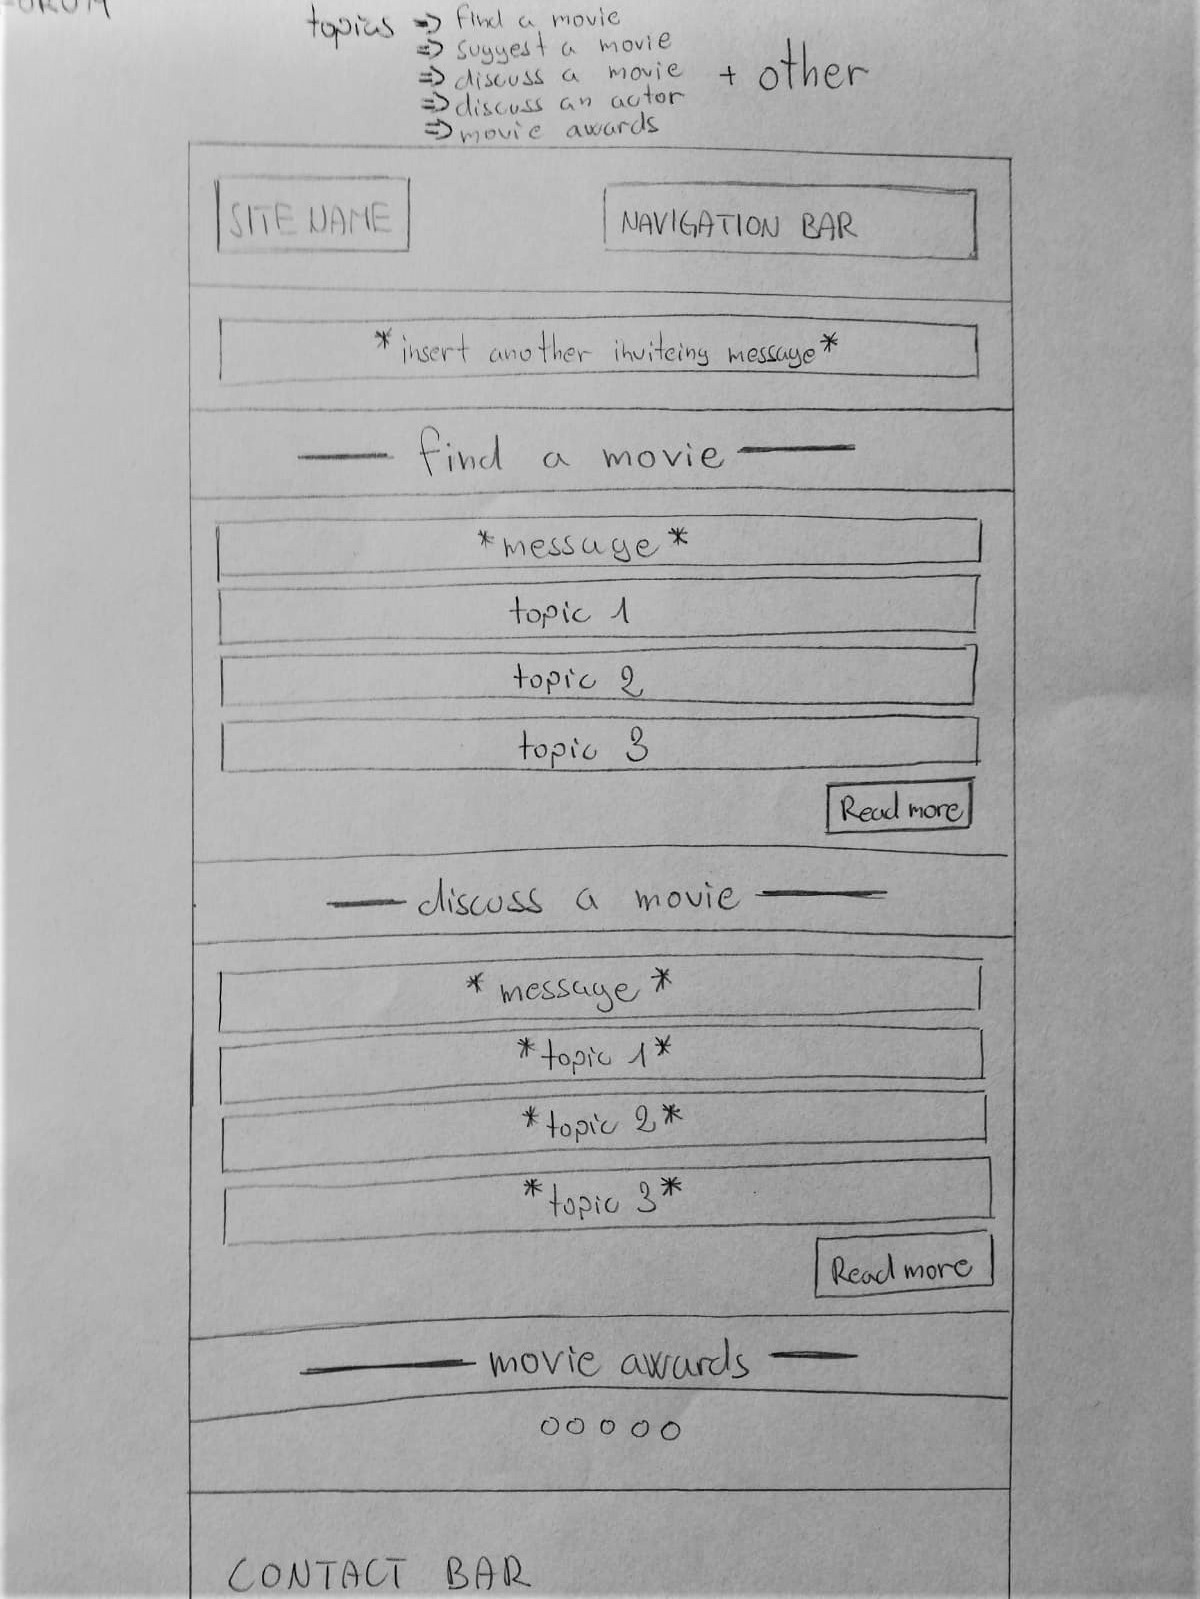 FORUM
topics => find a movie
=> suggest a movie
=> discuss a movie + other
=> discuss an actor
=> movie awards
SITE NAME NAVIGATION BAR
*insert another inviteing message*
find a movie
*message*
topic 1
topic 2
topic 3
Read more
discuss a movie
*message*
*topic 1*
*topic 2*
*topic 3*
Read more
movie awards
CONTACT BAR